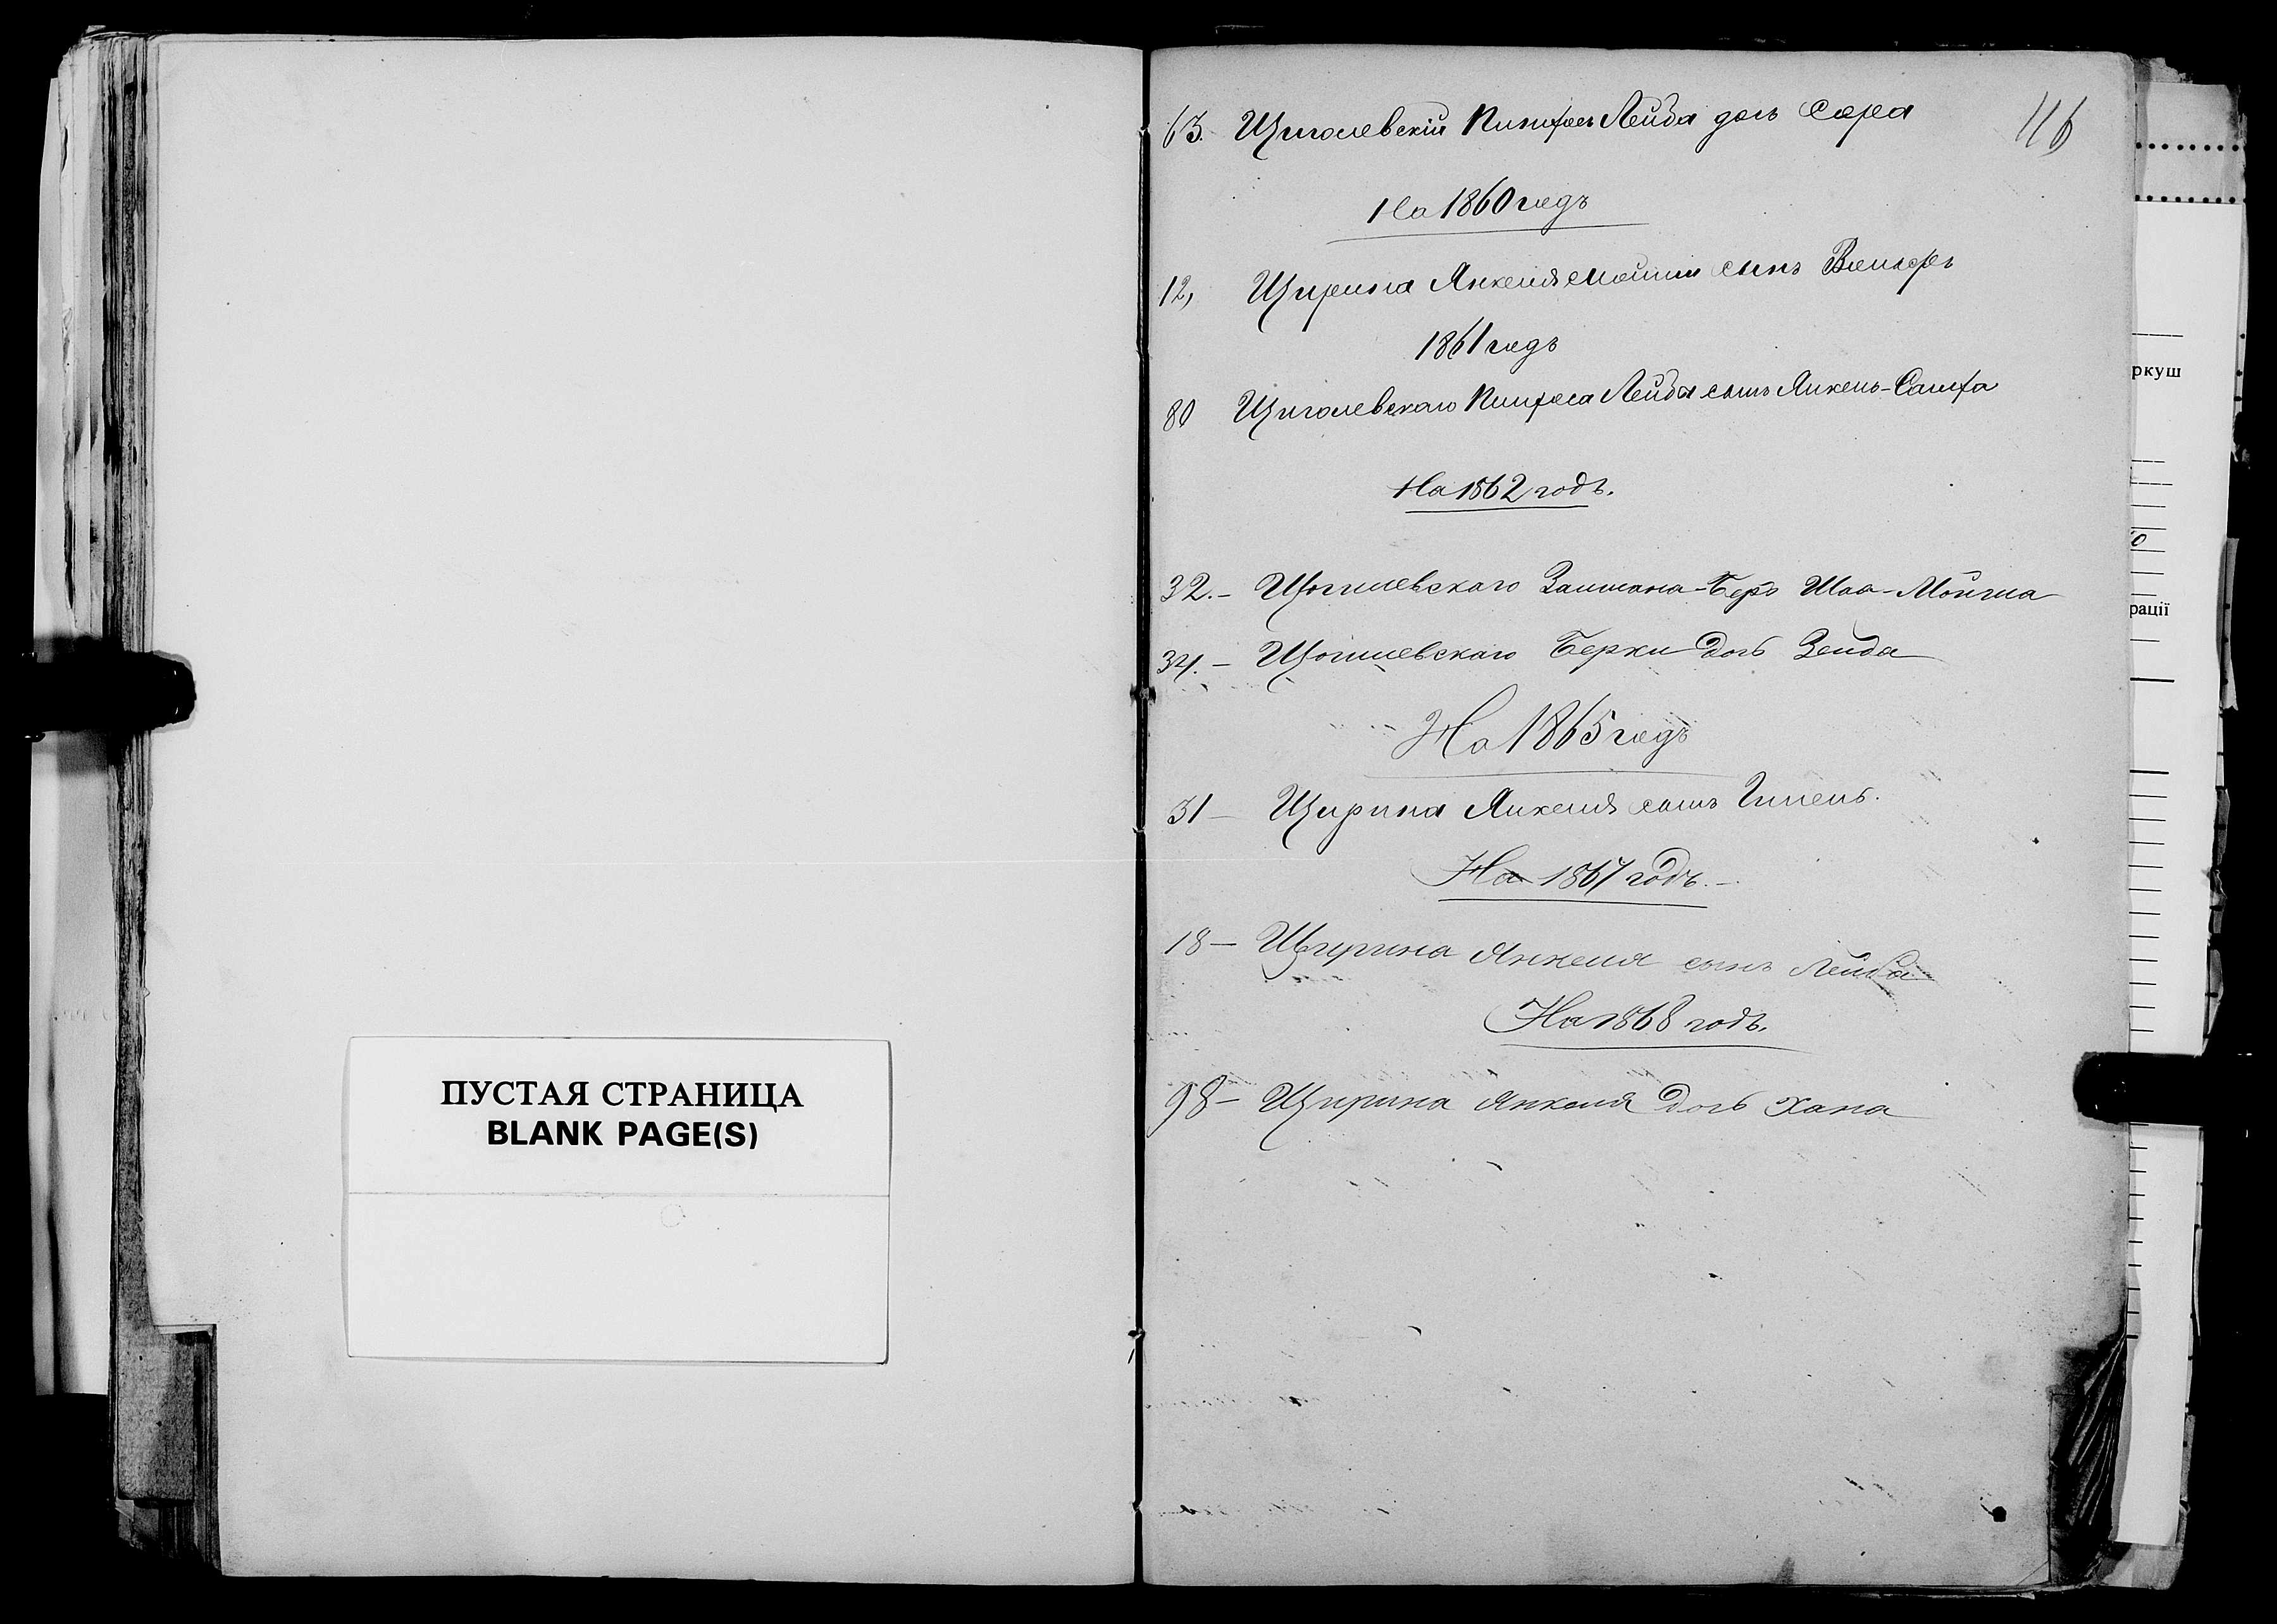 ПУСТАЯ СТРАНИЦА
BLANK PAGE(S)
116
63. Щиголевскій Пинхас Лейба дочь Сора
На 1860 годъ
12, Щирина Янкеля сынъ
1861 годъ
80 Щиголевскаго Пинхаса Лейбы сынъ Янкель-
На 1862 годъ.
32. – Щогилевскаго Залмана-Беръ
34. – Щогилевскаго Берки дочь Зелда
На 1865 годъ
31 – Щирина Янкеля сынъ Гилель.
На 1867 годъ. –
18 – Щирина Янкеля сынъ Лейба
На 1868 годъ.
98 – Щирина Янкеля дочь Хана
ркуш
рації